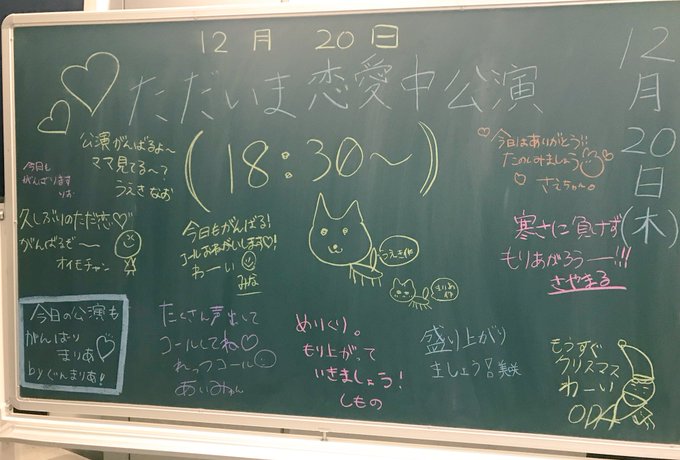 12月 20日
ただいま恋愛中公演
(18:30〜)
12月20日(木)
公演がんばるよ〜
ママ見てる〜て
うえきなお
今日も
がんばります
りお
久しぶりのただ恋♡
がんばるぞ〜
オイモチャン
今日の公演も
がんばり
まりあ♡
byぐんまりあ!
今日もがんばる!
コールおねがいします♡!
わーい
みな
うえき作
たくさん声出して
コールしてね♡
れっつコール
あいみゅん
めりくり。
もり上がって
いきましょう!
しもの
盛り上がり
ましょう 美咲
今日はありがとう!!
たのしみましょう
さえちゃ〜。
寒さに負けず
もりあがろうー!!!
さやまる
もうすぐ
クリスマス
わーい
ODA